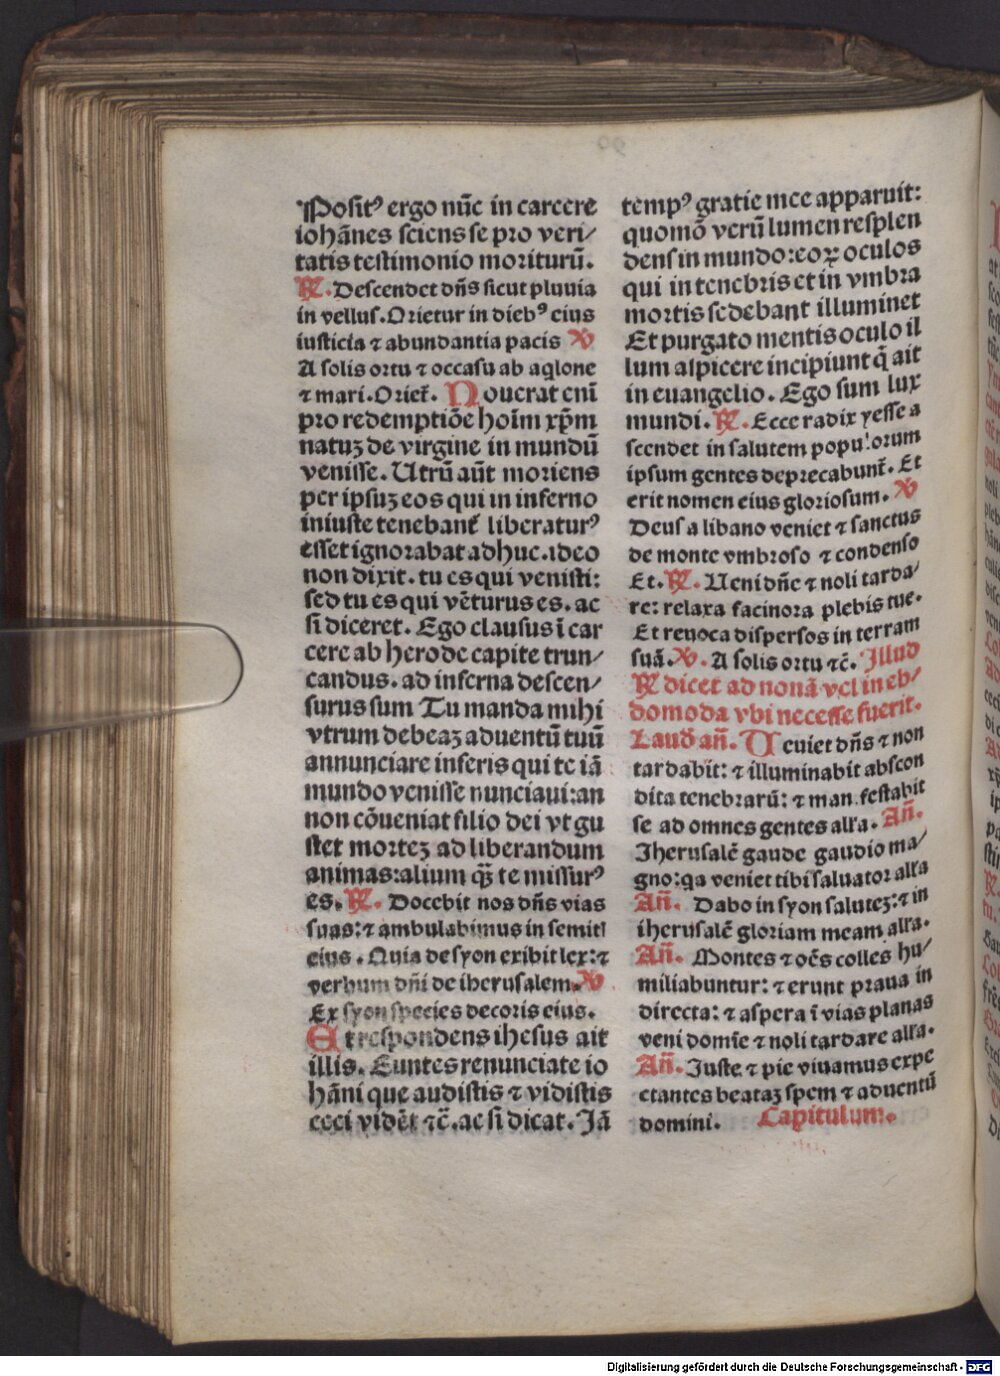 Positꝰ ergo nūc in carcere
iohānes sciens se pro veri/
tatis testimonio moriturū.
℟. Descendet dn̄s sicut pluuia
in vellus. Orietur in diebꝰ eius
iusticia ⁊ abundantia pacis ℣
A solis ortu ⁊ occasu ab aqlone
⁊ mari. Oriet̄. Nouerat eni̅
pro redemptiōe hoīm xp̄m
natuȝ de virgine in mundū
venisse. Utrū aūt moriens
per ipsuȝ eos qui in inferno
iniuste tenebant̄ liberaturꝰ
esset ignorabat adhuc. ideo
non dixit. tu es qui venisti:
sed tu es qui vēturus es. ac
si diceret. Ego clausus ī car
cere ab herode capite trun/
candus. ad inferna descen/
surus sum Tu manda mihi
vtrum debeaȝ aduentū tuū
annunciare inferis qui te iā
mundo venisse nunciaui: an
non cōueniat filio dei vt gu
stet morteȝ ad liberandum
animas: alium q̄ȝ te missurꝰ
es. ℟. Docebit nos dn̄s vias
suas: ⁊ ambulabimus in semitꝭ
eius. Quia de syon exibit lex: ⁊
verbum dn̄i de iherusalem. ℣
Ex syon species decoris eius.
Et respondens ihesus ait
illis. Euntes renunciate io
hāni que audistis ⁊ vidistis
ceci vidēt ⁊c̄. ac si dicat. Jā
tempꝰ gratie mee apparuit:
quomō verū lumen resplen
dens in mundo: eoꝝ oculos
qui in tenebris et in vmbra
mortis sedebant illuminet
Et purgato mentis oculo il
lum aspicere incipiunt q̄ ait
in euangelio. Ego sum lux
mundi. ℟. Ecce radix yesse a
scendet in salutem populorum
ipsum gentes deprecabunt̄. Et
erit nomen eius gloriosum. ℣
Deus a libano veniet ⁊ sanctus
de monte vmbroso ⁊ condenso
Et. ℟. Ueni dn̄e ⁊ noli tarda/
re: relaxa facinora plebis tue.
Et reuoca dispersos in terram
suā. ℣. A solis ortu ⁊c̄. Illud
℟ dicet ad nonā vel in eb/
domoda vbi necesse fuerit.
Laud̄ an̄. Ueniet dn̄s ⁊ non
tardabit: ⁊ illuminabit abscon
dita tenebrarū: ⁊ manifestabit
se ad omnes gentes alľa. An̄.
Jherusalē gaude gaudio ma/
gno: qa veniet tibi saluator alľa
An̄. Dabo in syon saluteȝ: ⁊ in
iherusalē gloriam meam alľa.
An̄. Montes ⁊ oēs colles hu/
miliabuntur: ⁊ erunt praua in
directa: ⁊ aspera ī vias planas
veni domīe ⁊ noli tardare alľa.
An̄. Juste ⁊ pie viuamus expe
ctantes beataȝ spem ⁊ aduentū
domini. Capitulum.
Digitalisierung gefördert durch die Deutsche Forschungsgemeinschaft - DFG